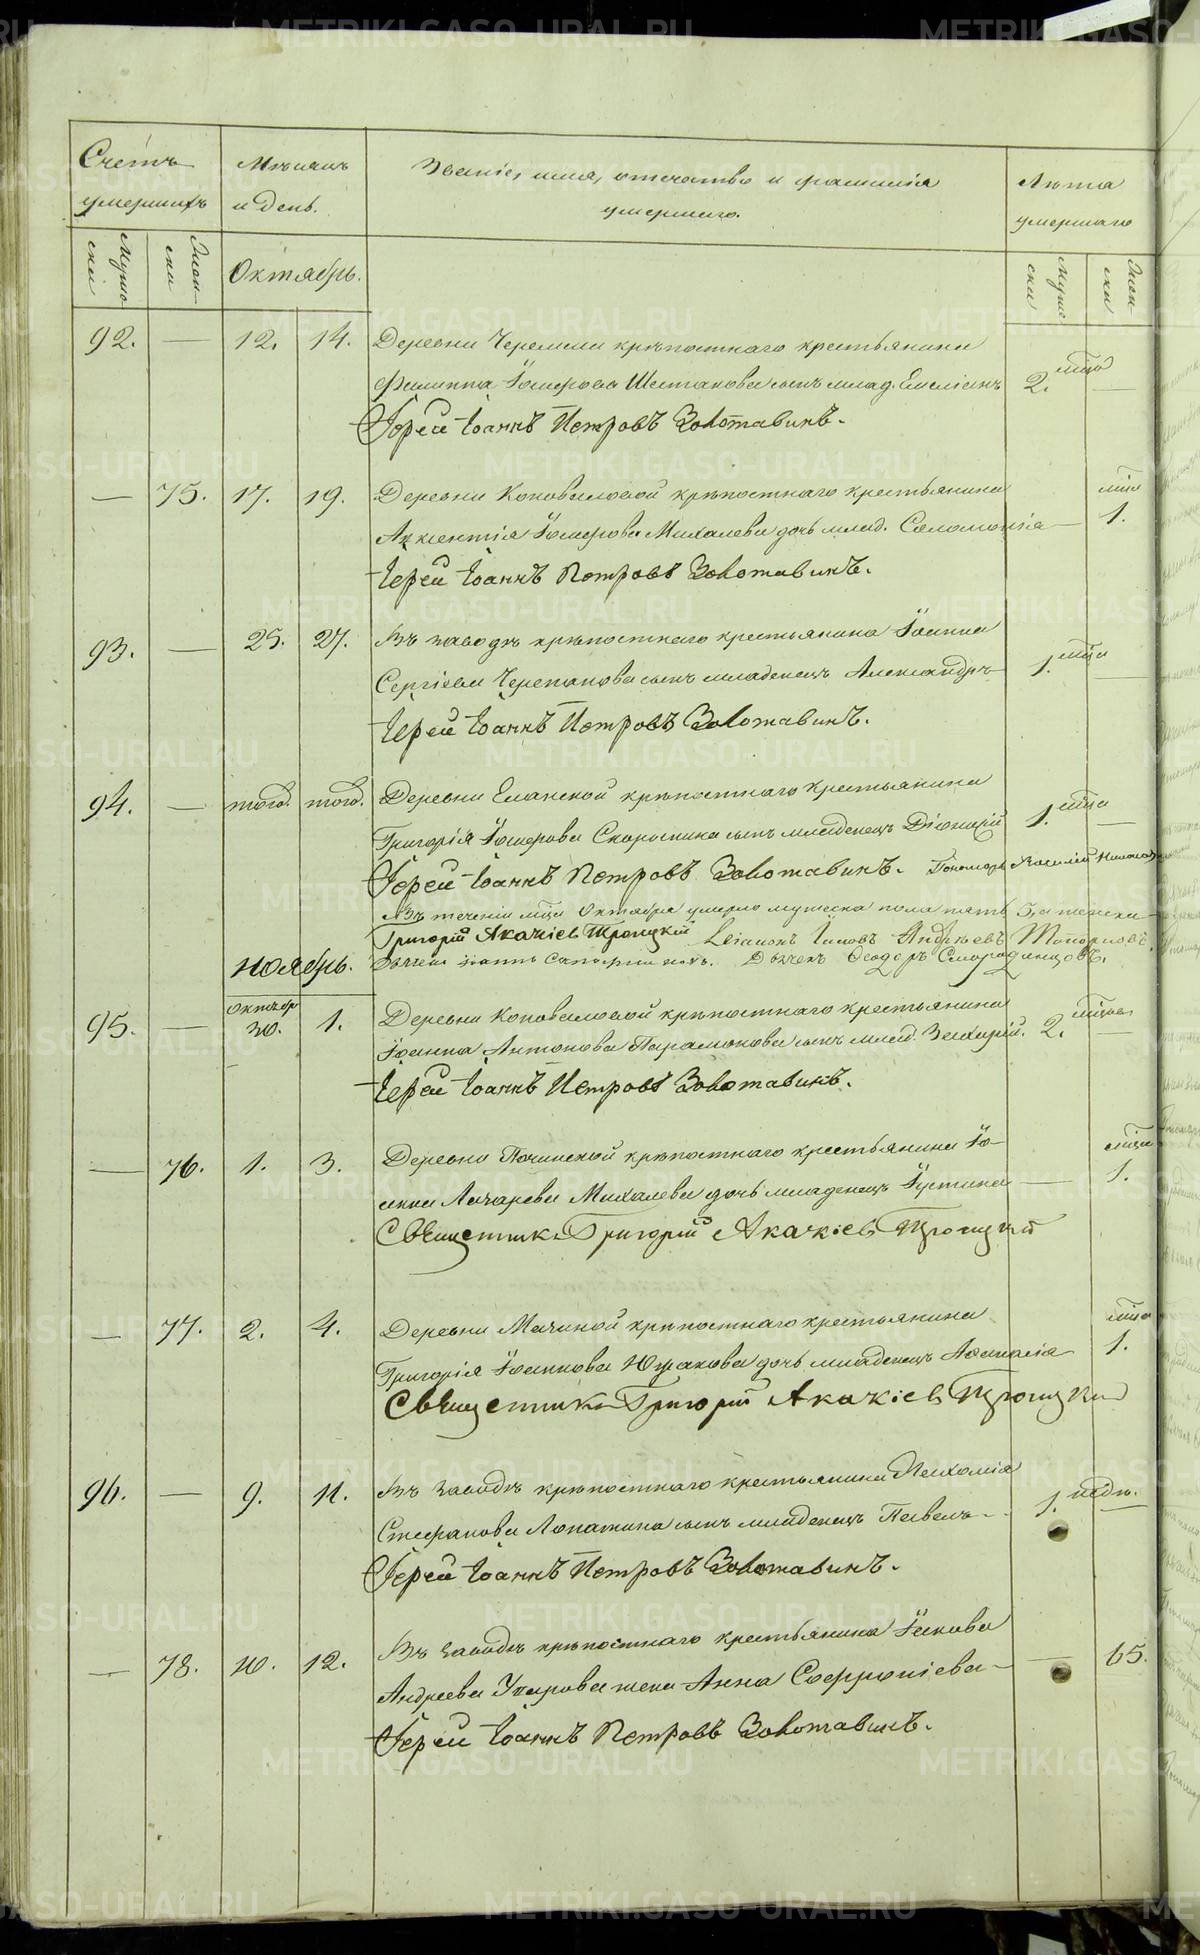 Счетъ умершихъ
Мѣсяцъ и день.
Званіе, имя, отчество и фамилія умершаго.
Лѣта умершаго
Мужески
Женски
Октябрь.
Мужески
Женски
92. — 12. 14. Деревни Черемши крѣпостнаго крестьянина
Филиппа Іосифова Шестакова сынъ млад. Емеліанъ 2. мца —
Іерей Іоаннъ Петровъ Золотавинъ.
— 75. 17. 19. Деревни Коноваловой крѣпостнаго крестьянина мца
Авксентія Іосифова Михалева дочь млад. Соломонія — 1.
Іерей Іоаннъ Петровъ Золотавинъ.
93. — 25. 27. Въ заводѣ крѣпостнаго крестьянина Іоанна
Сергіева Черепанова сынъ младенецъ Александръ 1. мца —
Іерей Іоаннъ Петровъ Золотавинъ.
94. — тогож. тогож. Деревни Еланской крѣпостнаго крестьянина
Григорія Іосифова Скоропина сынъ младенецъ Діонисій 1. мца —
Іерей Іоаннъ Петровъ Золотавинъ. Пономарь Василій
Въ теченіи мца Октября умерло мужеска пола пять 5, а женска
Григорій Акакіевъ Троицкій Андрѣевъ Топорковъ.
Ноябрь. Дьячекъ Іоаннъ Дьячекъ Ѳеодоръ Смородинцовъ.
95. — Октября 30. 1. Деревни Коноваловой крѣпостнаго крестьянина
Іоанна Антонова Парамонова сынъ млад. Захарій. 2. мца —
Іерей Іоаннъ Петровъ Золотавинъ.
— 76. 1. 3. Деревни Починской крѣпостнаго крестьянина Іо- мца
анна Лазарева Михалева дочь младенецъ Іустина — 1.
Священникъ Григорій Акакіевъ Троицкій
— 77. 2. 4. Деревни Мачиной крѣпостнаго крестьянина мца
Григорія Іоаннова Южакова дочь младенецъ Аѳанасія 1.
Священникъ Григорій Акакіевъ Троицкій
96. — 9. 11. Въ заводѣ крѣпостнаго крестьянина Пахомія
Стефанова Лопатина сынъ младенецъ Павелъ 1. недѣ. —
Іерей Іоаннъ Петровъ Золотавинъ.
— 78. 10. 12. Въ заводѣ крѣпостнаго крестьянина Іакова
Андреева Упорова жена Анна Софроніева — 65.
Іерей Іоаннъ Петровъ Золотавинъ.
METRIKI.GASO-URAL.RU